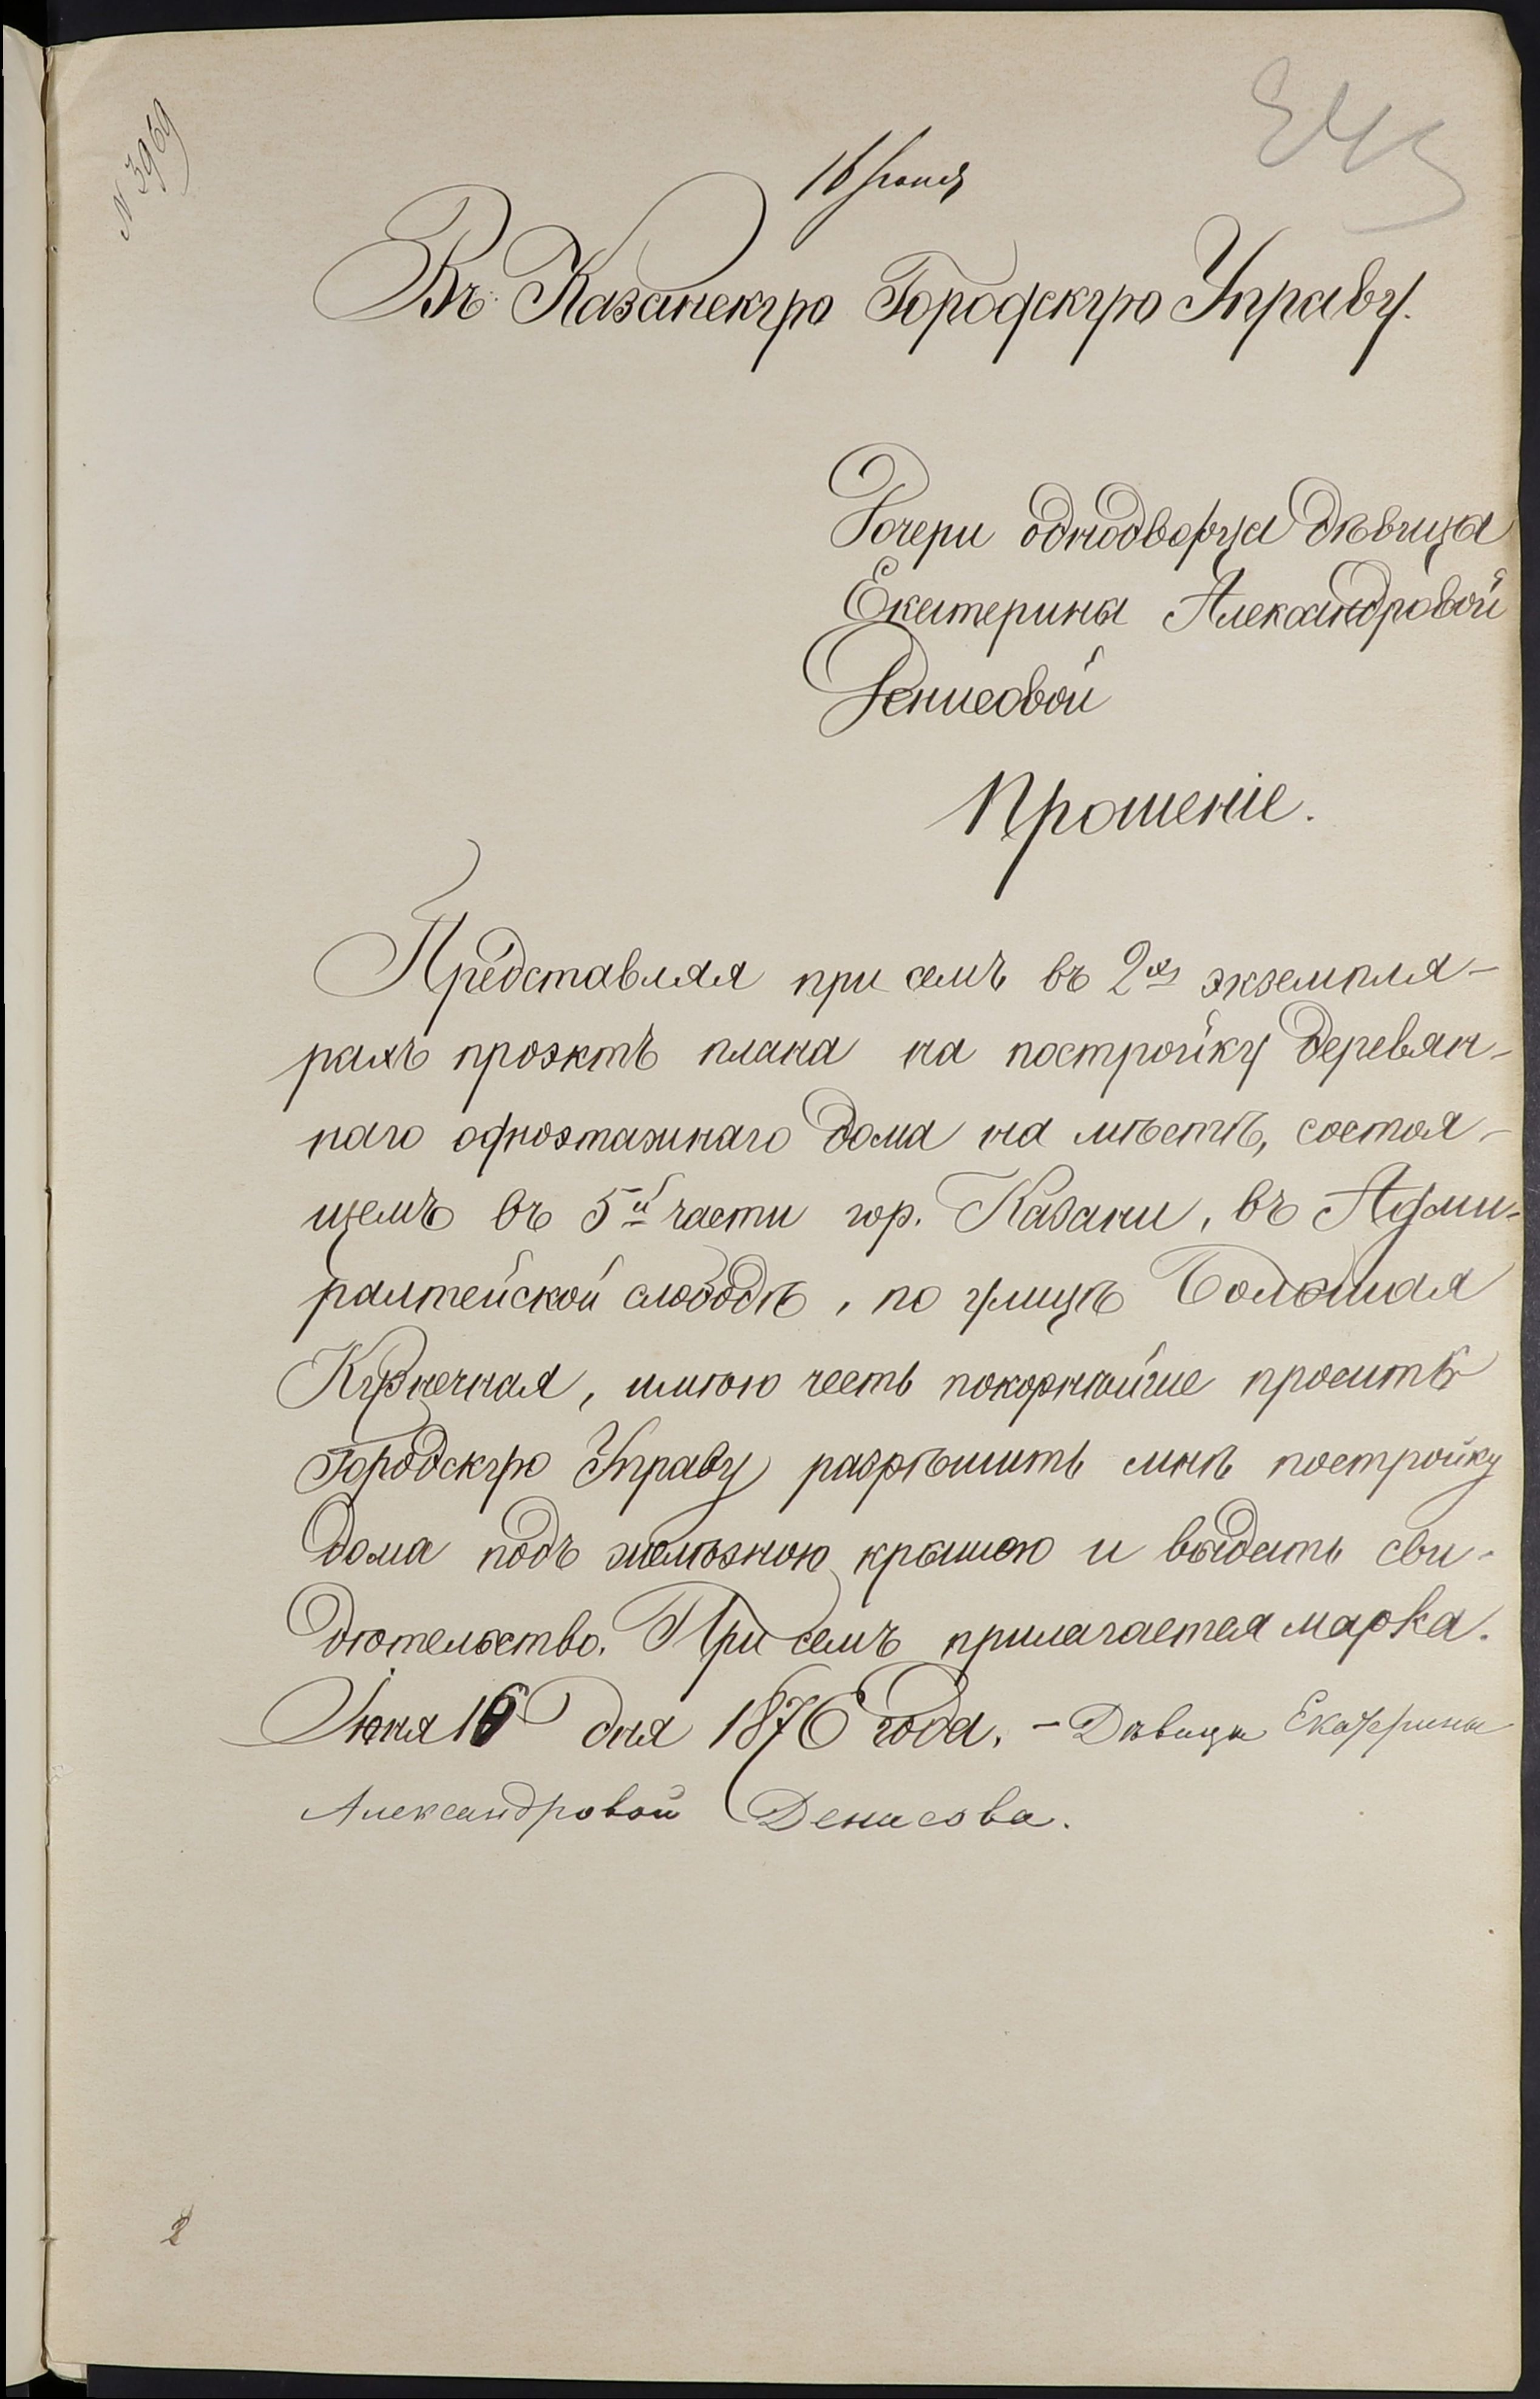 N 3969
16 Іюня
Въ Казанскую Городскую Управу.
Дочери однодворца дѣвицы
Екатерины Александровой
Денисовой
Прошеніе.
Представляя при семъ въ 2хъ экземпля-
рахъ проэктъ плана на постройку деревян-
наго одноэтажнаго дома на мѣстѣ, состоя-
щемъ въ 5й части гор. Казани, въ Адми-
ралтейской слободѣ, по улицѣ Большая
Кузнечная, имѣю честь покорнѣйше просить
Городскую Управу разрѣшить мнѣ постройку
дома подъ желѣзною крышею и выдать сви-
дѣтельство. При семъ прилагается марка.
Іюня 16 дня 1876 года. - Дѣвица Екатерина
Александровой Денисова.
2